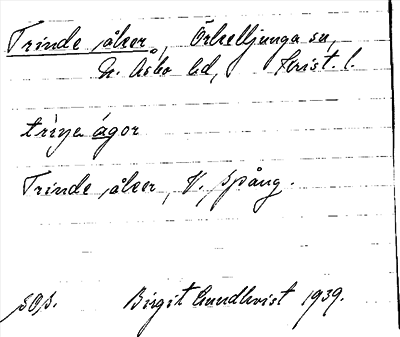 Trinde åker, Örkelljunga sn,
N. Åsbo hd, Krist. l.
trine ågor
Trinde åker, V. Spång.
sOs. Birgit Lundkvist 1939.